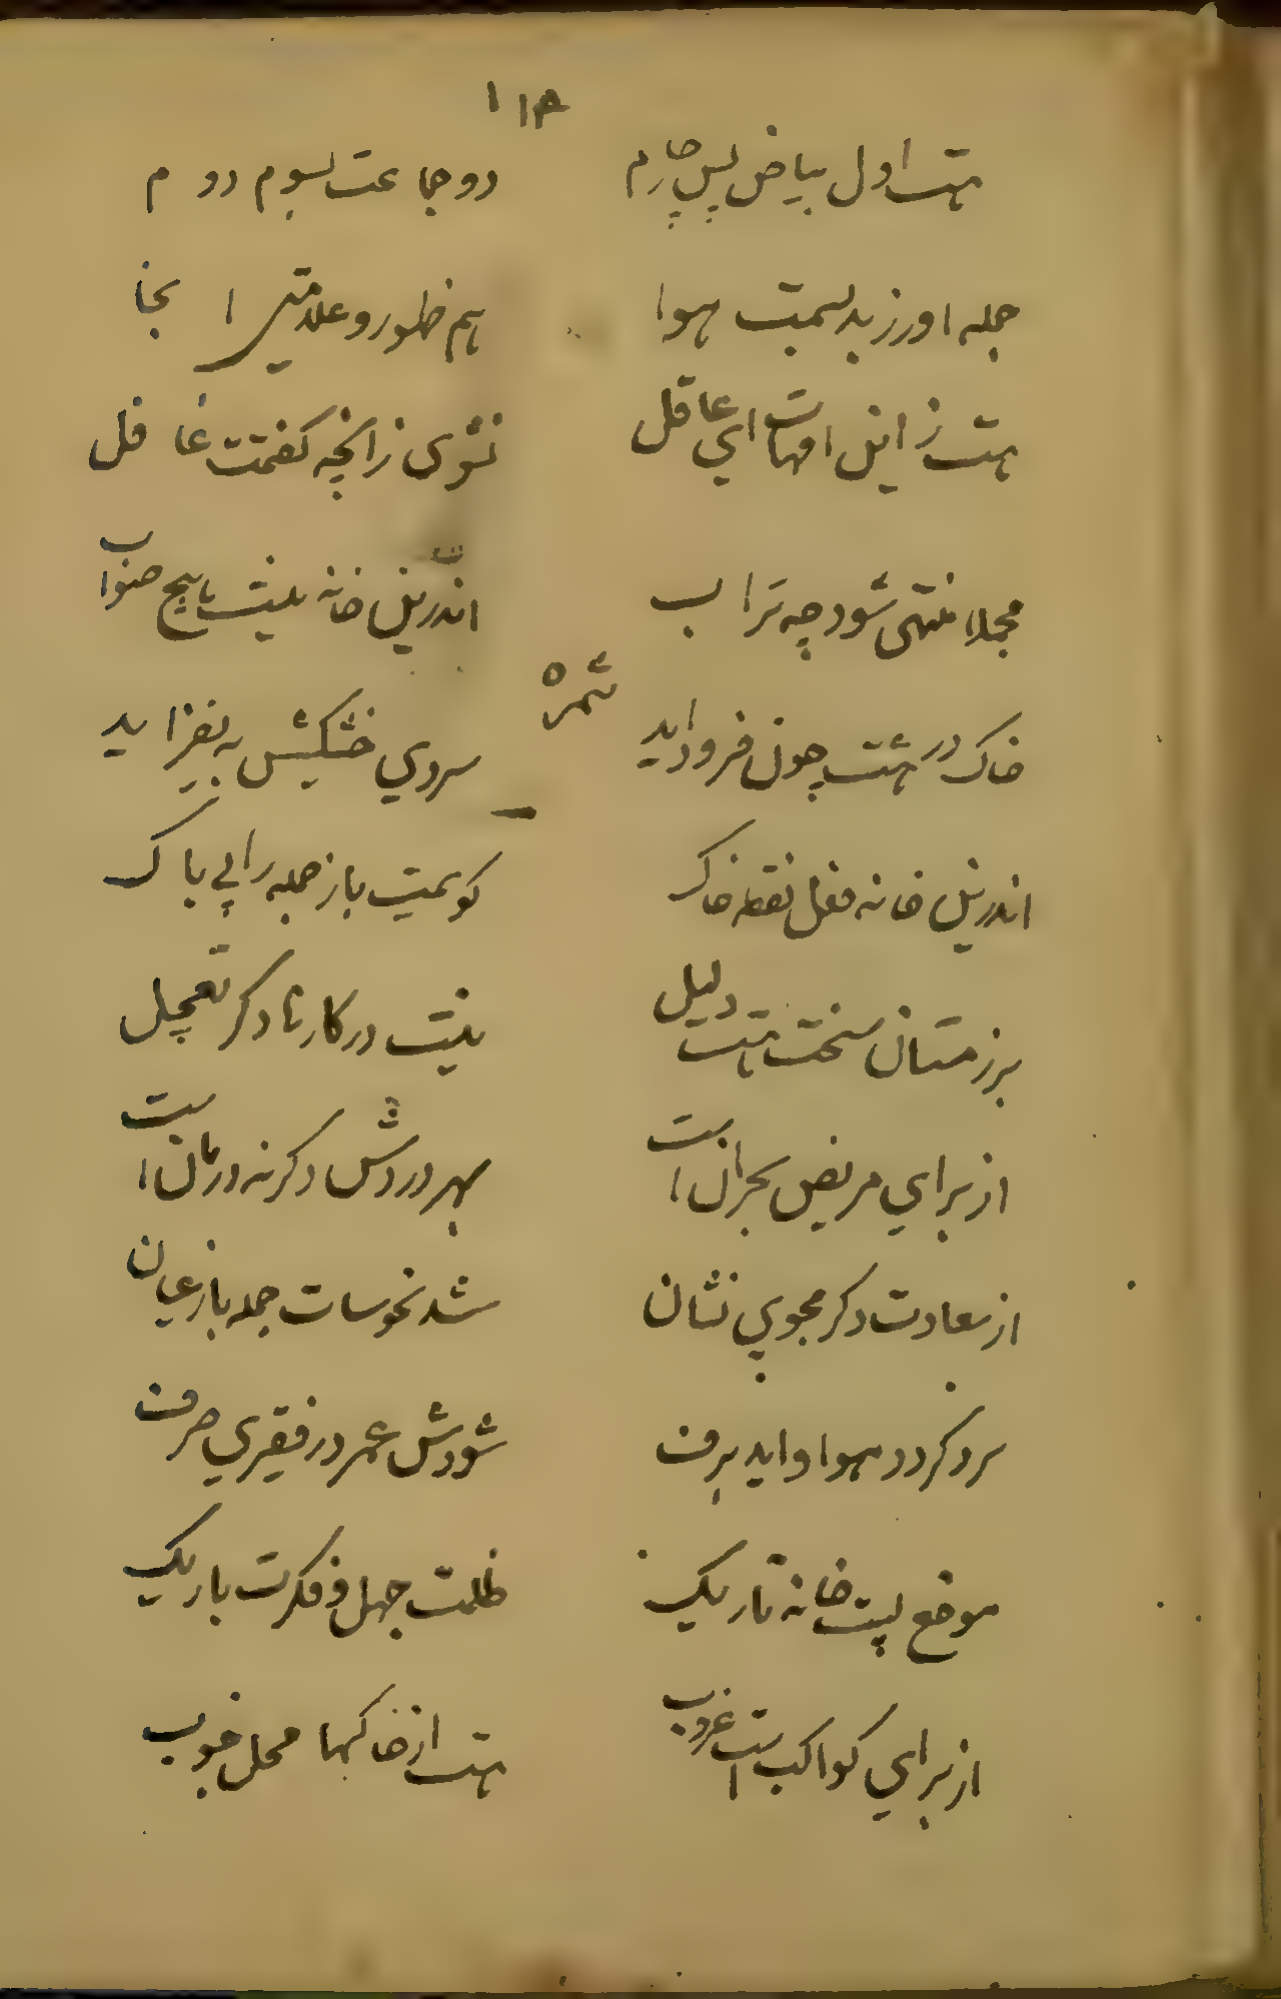 هست اول بیاض پس چارم دو جماعت سوم دوم
جمله اورزبد بسمت هوا هم ظهور و علامتیرا بخا
هست زاینل امهات ای عاقل نشوی زانچه کفتمت غافل
مجملا منتهی شود چه تراب اندرین خانه نیست هیچ صواب
ثمره
خاک در هشت چون فروداید سردی خشکیش به یفزاید
اندرین خانه فعل نقطه خاک کویمت باز جمله رابی باک
بر زمستان سخت هست دلیل نیست در کارها دکر تعجیل
از برای مریض بحران است بهر دردش دکر نه درمان است
از سعادت دکر مجوی نشان شد نحوسات جمله باز عیان
سرد کردد هوا و اید برف شودش عمر در فقیری صرف
موضع پست خانه تاریک ظلمت جهل و فکرت باریک
از برای کواکب است غروب هست از خاکها محل خوب